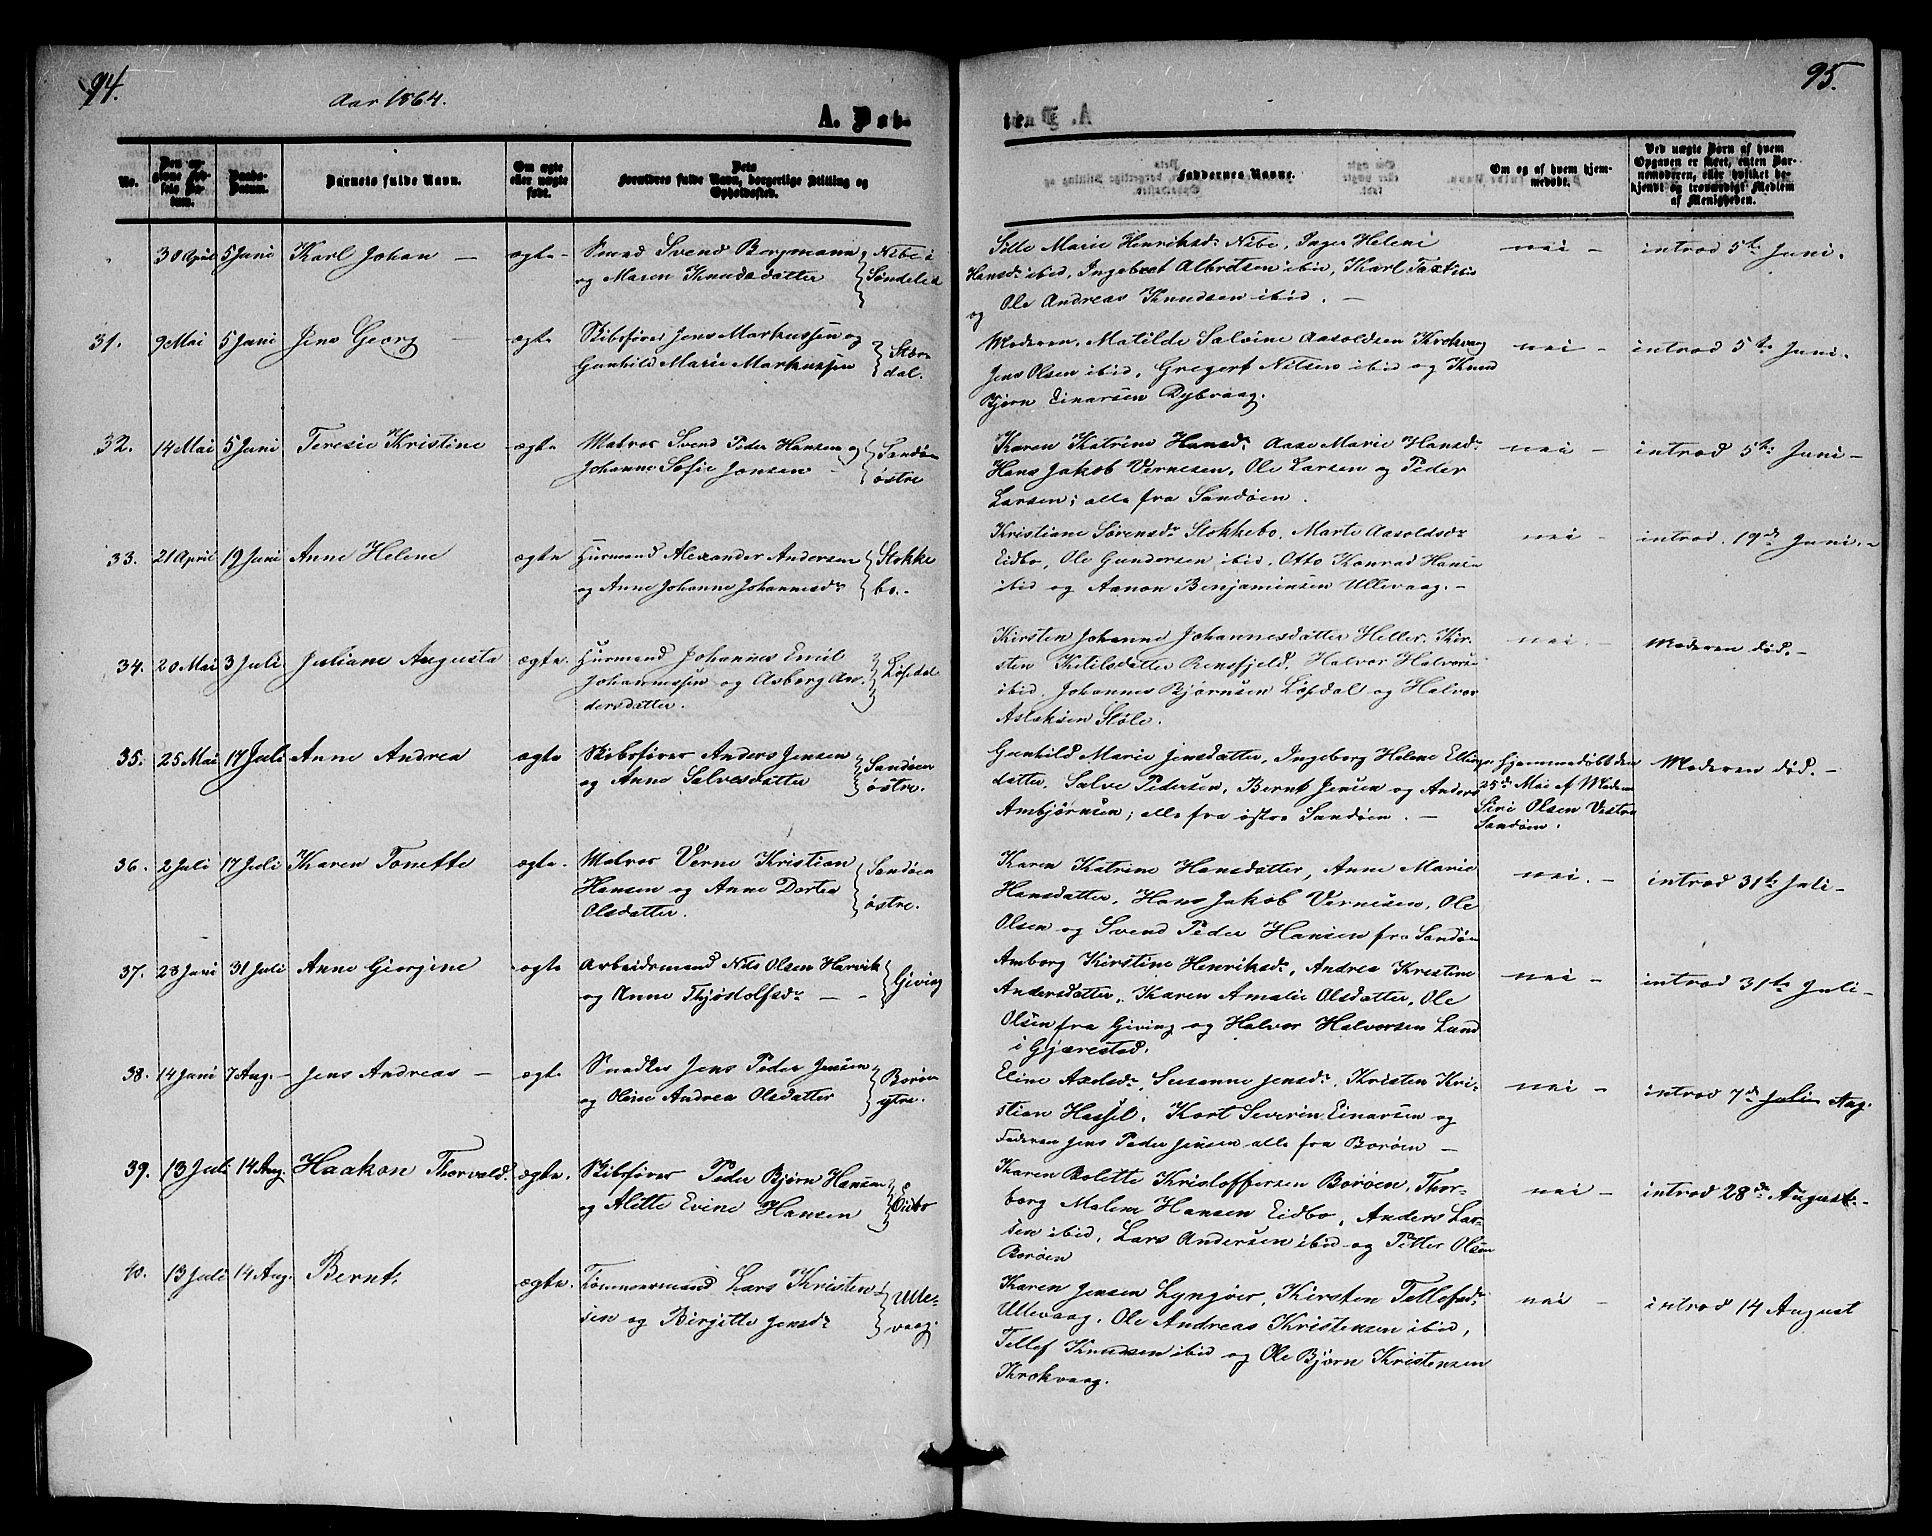 94.
Aar 1864.
A. Fød-
No.
Den angivne Fødsels Datum.
Daabs-Datum.
Barnets fulde Navn.
Om ægte eller uægte født.
Dets Forældres fulde Navn, borgerlige Stilling og Opholdssted.
30 April 5 Juni Karl Johan — ægte - Smed Svend Bergmann Nibe i
og Maren Knudsdatter Søndeled
31. 9 Mai 5 Juni Jens Georg — ægte Skibsfører Jens Markussen og
Gunhild Marie Markussen
32. 14 Mai 5 Juni Teresie Kristine ægte Matros Svend Peder Hansen og Sandøen
Johanne Sofie Jonsen — østre
33. 21 April 19 Juni Anne Helene ægte Husmand Alexander Andersen Stokke
og Anne Johanne Johannesdr bo.-
34. 20 Mai 3 Juli Juliane Augusta ægte. Husmand Johannes Emil Løvdal
Johannessen og Asborg An-
dersdatter.
35. 25 Mai 17 Juli Anne Andrea ægte Skibsfører Anders Jensen Sandøen
og Anne Salvesdatter østre.
36. 2 Juli 17 Juli Karen Tonette ægte. Matros Verne Kristian Sandøen
Hansen og Anne Dortea østre.
Olsdatter.
37. 28 Juni 31 Juli Anne Georgine ægte Arbeidsmand Nils Olsen Harvik Giving
og Anne Thjøstolfsdr — -
38. 14 Juni 7 Aug. - Jens Andreas — ægte Snedker Jens Peder Jensen Borøen
og Oline Andrea Olsdatter ytre.
39. 13 Juli 14 Aug. Haakon Thorvald. ægte. Skibsfører Peder Bjørn Hansen Eidbo
og Alette Evine Hansen
40. 13 Juli 14 Aug. Bernt. ægte. Tømmermand Lars Kristen- Ulle-
sen og Birgitte Jensdr vaag.
95.
te.
Faddernes Navne.
Om og af hvem hjemmedøbt.
Ved uægte Børn af hvem Opgaven er skeet, enten Barnemoderen, eller hvilket bekjendt og troværdigt Medlem af Menigheden.
Marie Henriksdr Nibe, Inger Helene nei — introd 5te Juni.
Hansdr ibid, Ingebret Albretsen ibid, Karl ibid
og Ole Andreas Knudsen ibid. —
Moderen, Matilde Salvine Aasoldsen Krokvaag nei — introd 5te Juni.
Jens Olsen ibid, Gregert Nilsen ibid og Knud
Bjørn Einarsen Dybvaag.
Karen Katrine Hansdr Aase Marie Hansdr nei — introd 5te Juni —
Hans Jakob Vernesen, Ole Larsen og Peder
Larsen; alle fra Sandøen.
Kristiane Sørensdr Stokkebo, Marte Aasoldsdr nei - introd. 19de Juni. -
Eidbo, Ole Gundersen ibid, Otto Konrad Hansen
ibid og Aanon Benjaminsen Ullevaag. -
Kirsten Johanne Johannesdatter Heller, Kir- nei. - Moderen død. -
sten Ketilsdatter Rensfjeld, Halvor Halvorsen
ibid, Johannes Bjørnsen Løvdal og Halvor
Aslaksen Støle.
Gunhild Marie Jensdatter, Ingeborg Helene Hjemmedøbt den Moderen død. -
datter, Salve Pedersen, Bernt Jensen og Anders 25de Mai af Madam
Ambjørnsen; alle fra østre Sandøen. — Siri Olsen Vestre
Sandøen.
Karen Katrine Hansdatter, Anne Marie nei. - introd 31te Juli -
Hansdatter, Hans Jakob Vernesen, Ole
Olsen og Svend Peder Hansen fra Sandøen
Amborg Kirstine Henriksdr, Andrea Kristine nei - introd 31te Juli -
Andersdatter, Karen Amalie Olsdatter, Ole
Olsen fra Giving og Halvor Halvorsen Lund
i Gjærestad.
Eline Axelsdr, Susanne Jensdr, Kristen Kri- nei — introd 7de Juli Aug.
stian Hassel, Kort Severin Einarsen og
Faderen Jens Peder Jensen alle fra Borøen —
Karen Bolette Kristoffersen Borøen, Thor- nei - introd 28de August. -
borg Malene Hansen Eidbo, Anders Lar-
sen ibid, Lars Andersen ibid og Petter Olsen
Borøen
Karen Jensen Lyngøer, Kirsten Tellefsdr nei — introd 14 August
Ullevaag, Ole Andreas Kristensen ibid,
Tellef Knudsen ibid og Ole Bjørn Kristensen
Krokvaag.